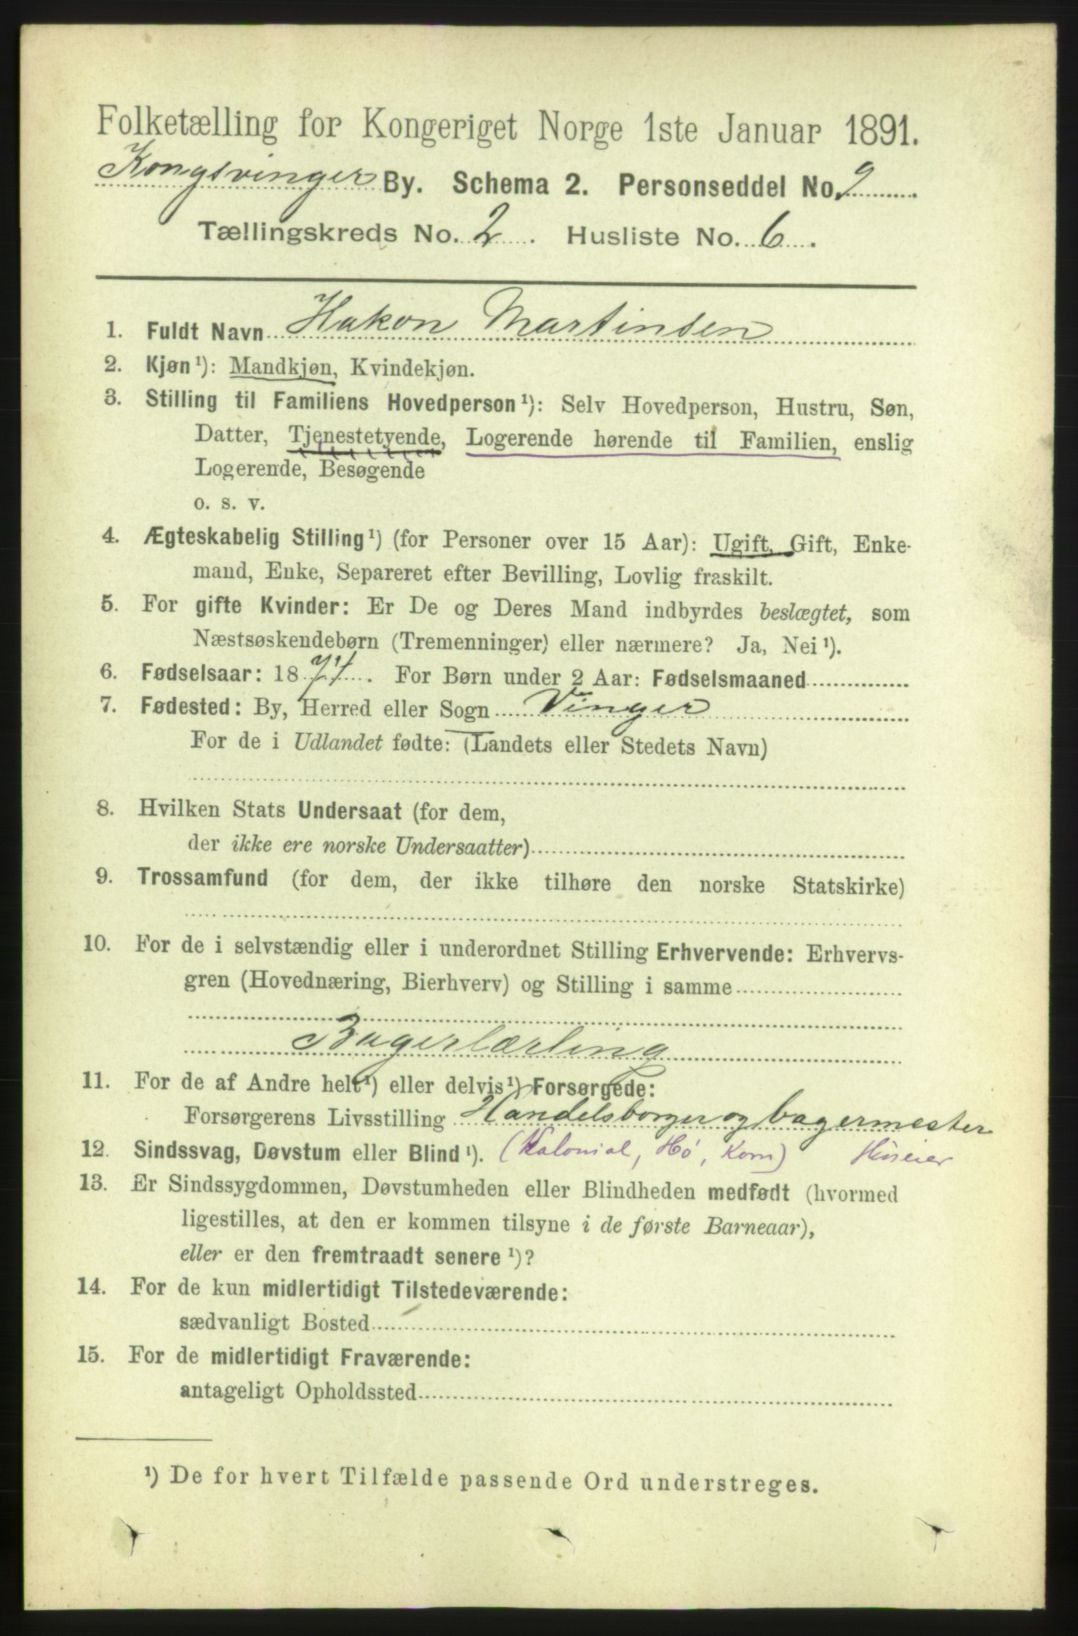 Folketælling for Kongeriget Norge 1ste Januar 1891.
Kongsvinger By. Schema 2. Personseddel No. 9
Tællingskreds No. 2. Husliste No. 6.
1. Fuldt Navn Hakon Martinsen
2. Kjøn¹): Mandkjøn, Kvindekjøn.
3. Stilling til Familiens Hovedperson¹): Selv Hovedperson, Hustru, Søn,
Datter, Tjenestetyende, Logerende hørende til Familien, enslig
Logerende, Besøgende
o. s. v.
4. Ægteskabelig Stilling¹) (for Personer over 15 Aar): Ugift, Gift, Enke-
mand, Enke, Separeret efter Bevilling, Lovlig fraskilt.
5. For gifte Kvinder: Er De og Deres Mand indbyrdes beslægtet, som
Næstsøskendebørn (Tremenninger) eller nærmere? Ja, Nei¹).
6. Fødselsaar: 1874. For Børn under 2 Aar: Fødselsmaaned
7. Fødested: By, Herred eller Sogn Vinger
For de i Udlandet fødte: (Landets eller Stedets Navn)
8. Hvilken Stats Undersaat (for dem,
der ikke ere norske Undersaatter)
9. Trossamfund (for dem, der ikke tilhøre den norske Statskirke)
10. For de i selvstændig eller i underordnet Stilling Erhvervende: Erhvervs-
gren (Hovednæring, Bierhverv) og Stilling i samme
Bagerlærling
11. For de af Andre helt¹) eller delvis¹) Forsørgede:
Forsørgerens Livsstilling Handelsborger og bagermester
12. Sindssvag, Døvstum eller Blind¹). (Kolonial, Hø, Korn) Huseier
13. Er Sindssygdommen, Døvstumheden eller Blindheden medfødt (hvormed
ligestilles, at den er kommen tilsyne i de første Barneaar),
eller er den fremtraadt senere¹)?
14. For de kun midlertidigt Tilstedeværende:
sædvanligt Bosted
15. For de midlertidigt Fraværende:
antageligt Opholdssted
¹) De for hvert Tilfælde passende Ord understreges.